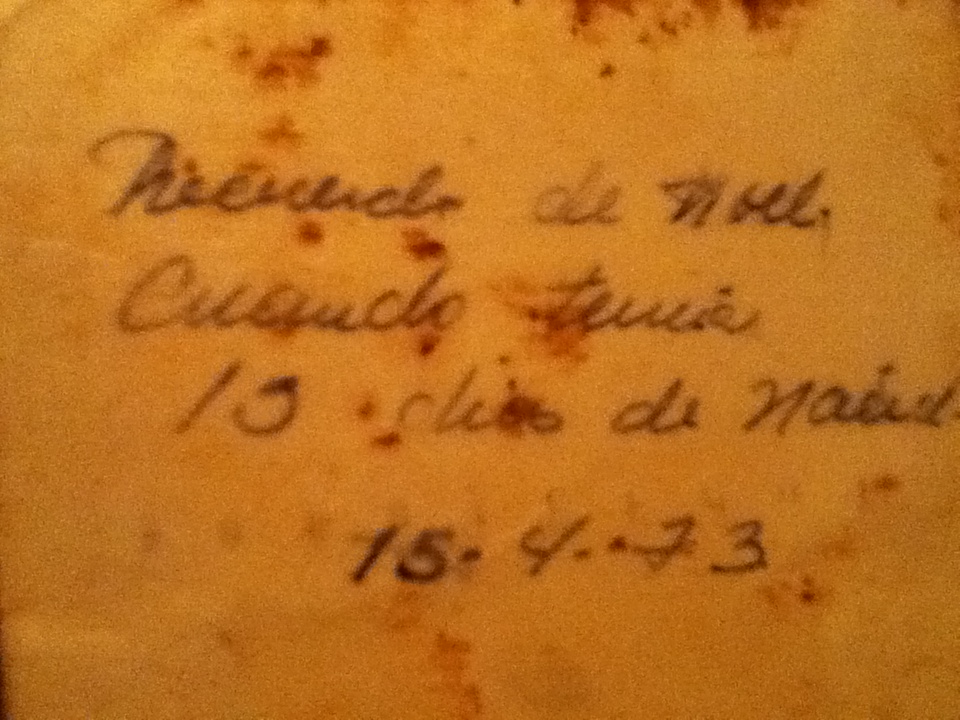 Recuerdo de Noel,
Cuando tenia
13 dias de Nacid
15.4.73